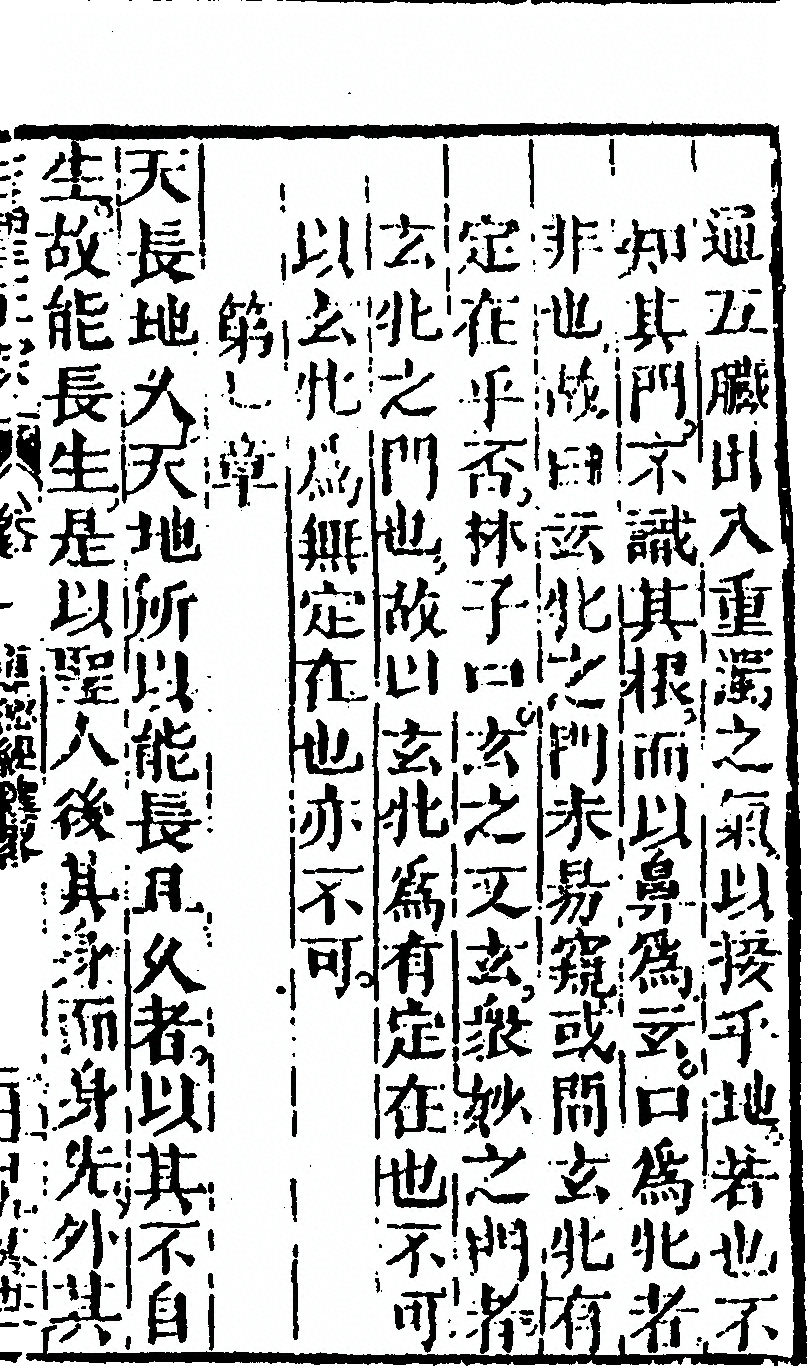 通五臟出入重濁之氣以接乎地若也不
知其門不識其根而以鼻爲玄口爲牝者
非也故曰玄牝之門未易窺或問玄牝有
定在乎否林子曰玄之又玄衆妙之門者
玄牝之門也故以玄牝爲有定在也不可
以玄牝爲無定在也亦不可
第七章
天長地久天地所以能長且久者以其不自
生故能長生是以聖人後其身而身先外其